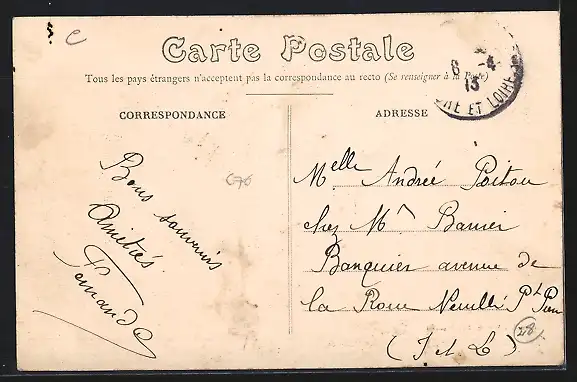 C
Carte Postale
Tous les pays étrangers n'acceptent pas la correspondance au recto (Se renseigner à la Poste)
8 -4
13
RE ET LOIRE
CORRESPONDANCE
ADRESSE
Bons souvenirs
Amitiés
Fernande
Melle Andrée Poitou
chez Mr
Banquier avenue de
la Neuillé Pt Pierre
(I et L)
28